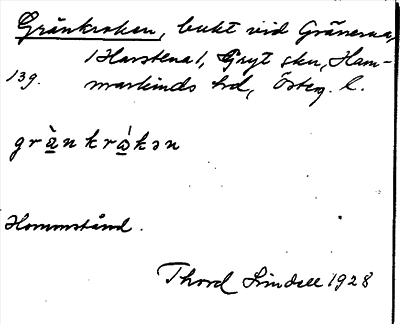 Gränkroken, bukt vid Gränerna,
/Harstena/, Gryt skn, Ham-
139. markinds hd, Österg. l.
grä̀nkrå̀kən
Hommstånd.
Thord Lindell 1928